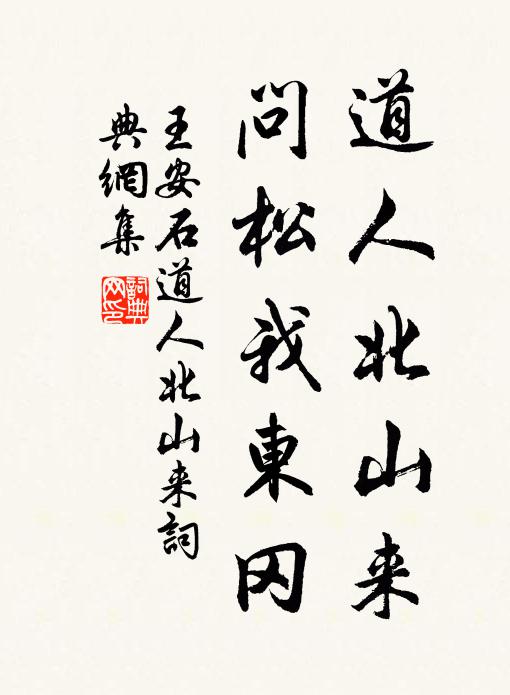 道人北山来
問松我東冈
王安石道人北山来詞
典網集
詞典网印